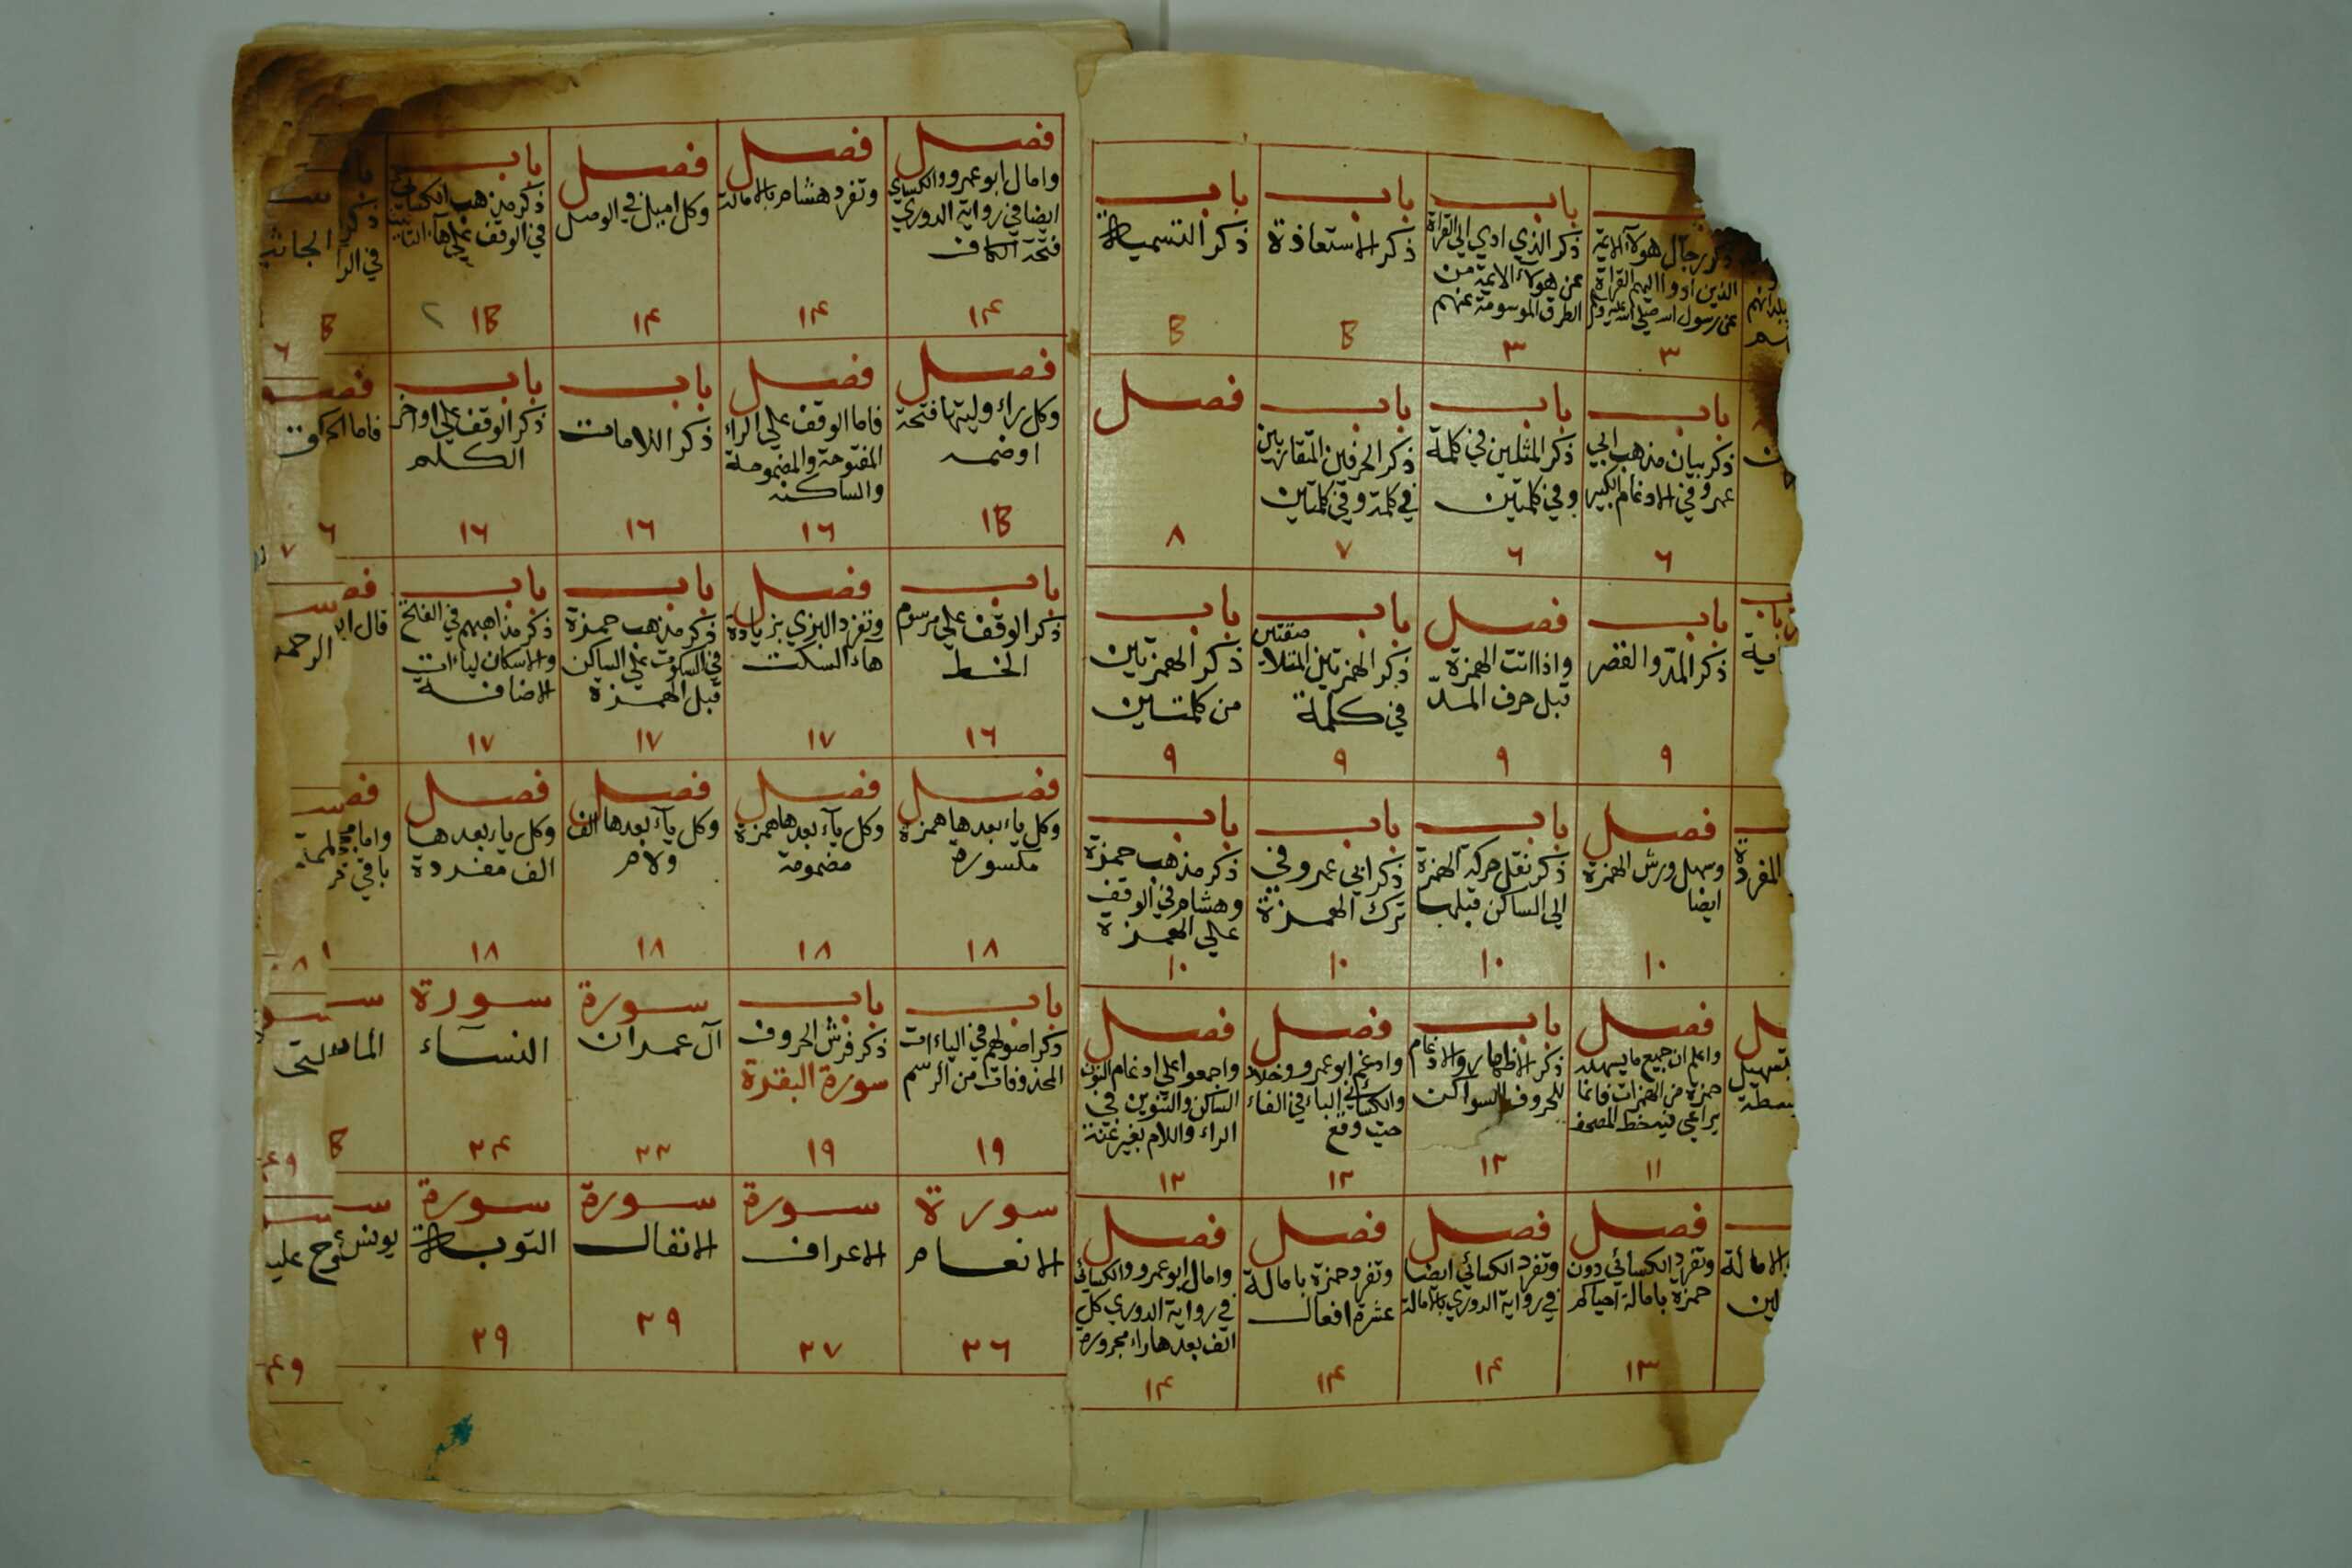 باب
ذكر رجال هولآء الايمة
الذين ادوا اليهم القراة
عن رسول الله صلى الله عليه وسلم
٣
باب
ذكر الذي ادي الي القراة
عن هولآء الايمة من
الطرق الموسومة عنهم
٣
باب
ذكر الاستعاذة
B
باب
ذكر التسمية
B
باب
ذكر بيان مذهب ابي
عمرو في الادغام الكبير
٦
باب
ذكر المثلين في كلمة
وفي كلمتين
٦
باب
ذكر الحرفين المتقاربين
في كلمة وفي كلمتين
٧
فصل
٨
باب
ذكر المد والقصر
٩
فصل
واذا اتت الهمزة
قبل حرف المد
٩
باب
ذكر الهمزتين المتلاصقتين
في كلمة
٩
باب
ذكر الهمزتين
من كلمتين
٩
المفردة
فصل
وسهل ورش الهمزة
ايضا
١٠
باب
ذكر نقل حركة الهمزة
الى الساكن قبلها
١٠
باب
ذكر ابي عمرو في
ترك الهمزة
١٠
باب
ذكر مذهب حمزة
وهشام في الوقف
علي الهمزة
١٠
فصل
واعلم ان جميع ما يسهله
حمزة من الهمزات فانما
يراعي فيه خط المصحف
١١
باب
ذكر الاظهار والادغام
للحروف السواكن
١٢
فصل
وادغم ابو عمرو وخلاد
والكسائي الباء في الفاء
حيث وقع
١٣
فصل
واجمعوا علي ادغام النون
الساكن والتنوين في
الراء واللام بغير غنة
١٣
الامالة
فصل
وتفرد الكسائي دون
حمزة بامالة احياكم
١٣
فصل
وتفرد الكسائي ايضا
في رواية الدوري بالامالة
١٤
فصل
وتفرد حمزة بامالة
عشرة افعال
١٤
فصل
وامال ابو عمرو والكسائي
في رواية الدوري كل
الف بعدها راء مجرورة
١٤
فصل
وامال ابو عمرو والكسائي
ايضا في رواية الدوري
فتحة الكاف
١٤
فصل
وتفرد هشام بالامالة
١٤
فصل
وكل اميل في الوصل
١٤
باب
ذكر مذهب الكسائي
في الوقف علي هآء التانيث
١B
فصل
وكل راء وليتها فتحة
او ضمه
١B
فصل
فاما الوقف علي الراء
المفتوحة والمضمومة
والساكنه
١٦
باب
ذكر اللامات
١٦
باب
ذكر الوقف علي اواخر
الكلم
١٦
باب
ذكر الوقف علي مرسوم
الخط
١٦
فصل
وتفرد البزي بزيادة
هاء السكت
١٧
باب
ذكر مذهب حمزة
في السكوت علي الساكن
قبل الهمزة
١٧
باب
ذكر مذاهبهم في الفتح
والاسكان لياءات
الاضافة
١٧
فصل
وكل ياء بعدها همزة
مكسورة
١٨
فصل
وكل يآء بعدها همزة
مضمومة
١٨
فصل
وكل يآء بعدها الف
ولام
١٨
فصل
وكل ياء بعدها
الف مفردة
١٨
باب
ذكر اصولهم في الياءات
المحذوفات من الرسم
١٩
باب
ذكر فرش الحروف
سورة البقرة
١٩
سورة
آل عمران
٢٣
سورة
النساء
٢٤
سورة
الانعام
٢٦
سورة
الاعراف
٢٧
سورة
الانفال
٢٩
سورة
التوبة
٢٩
يونس